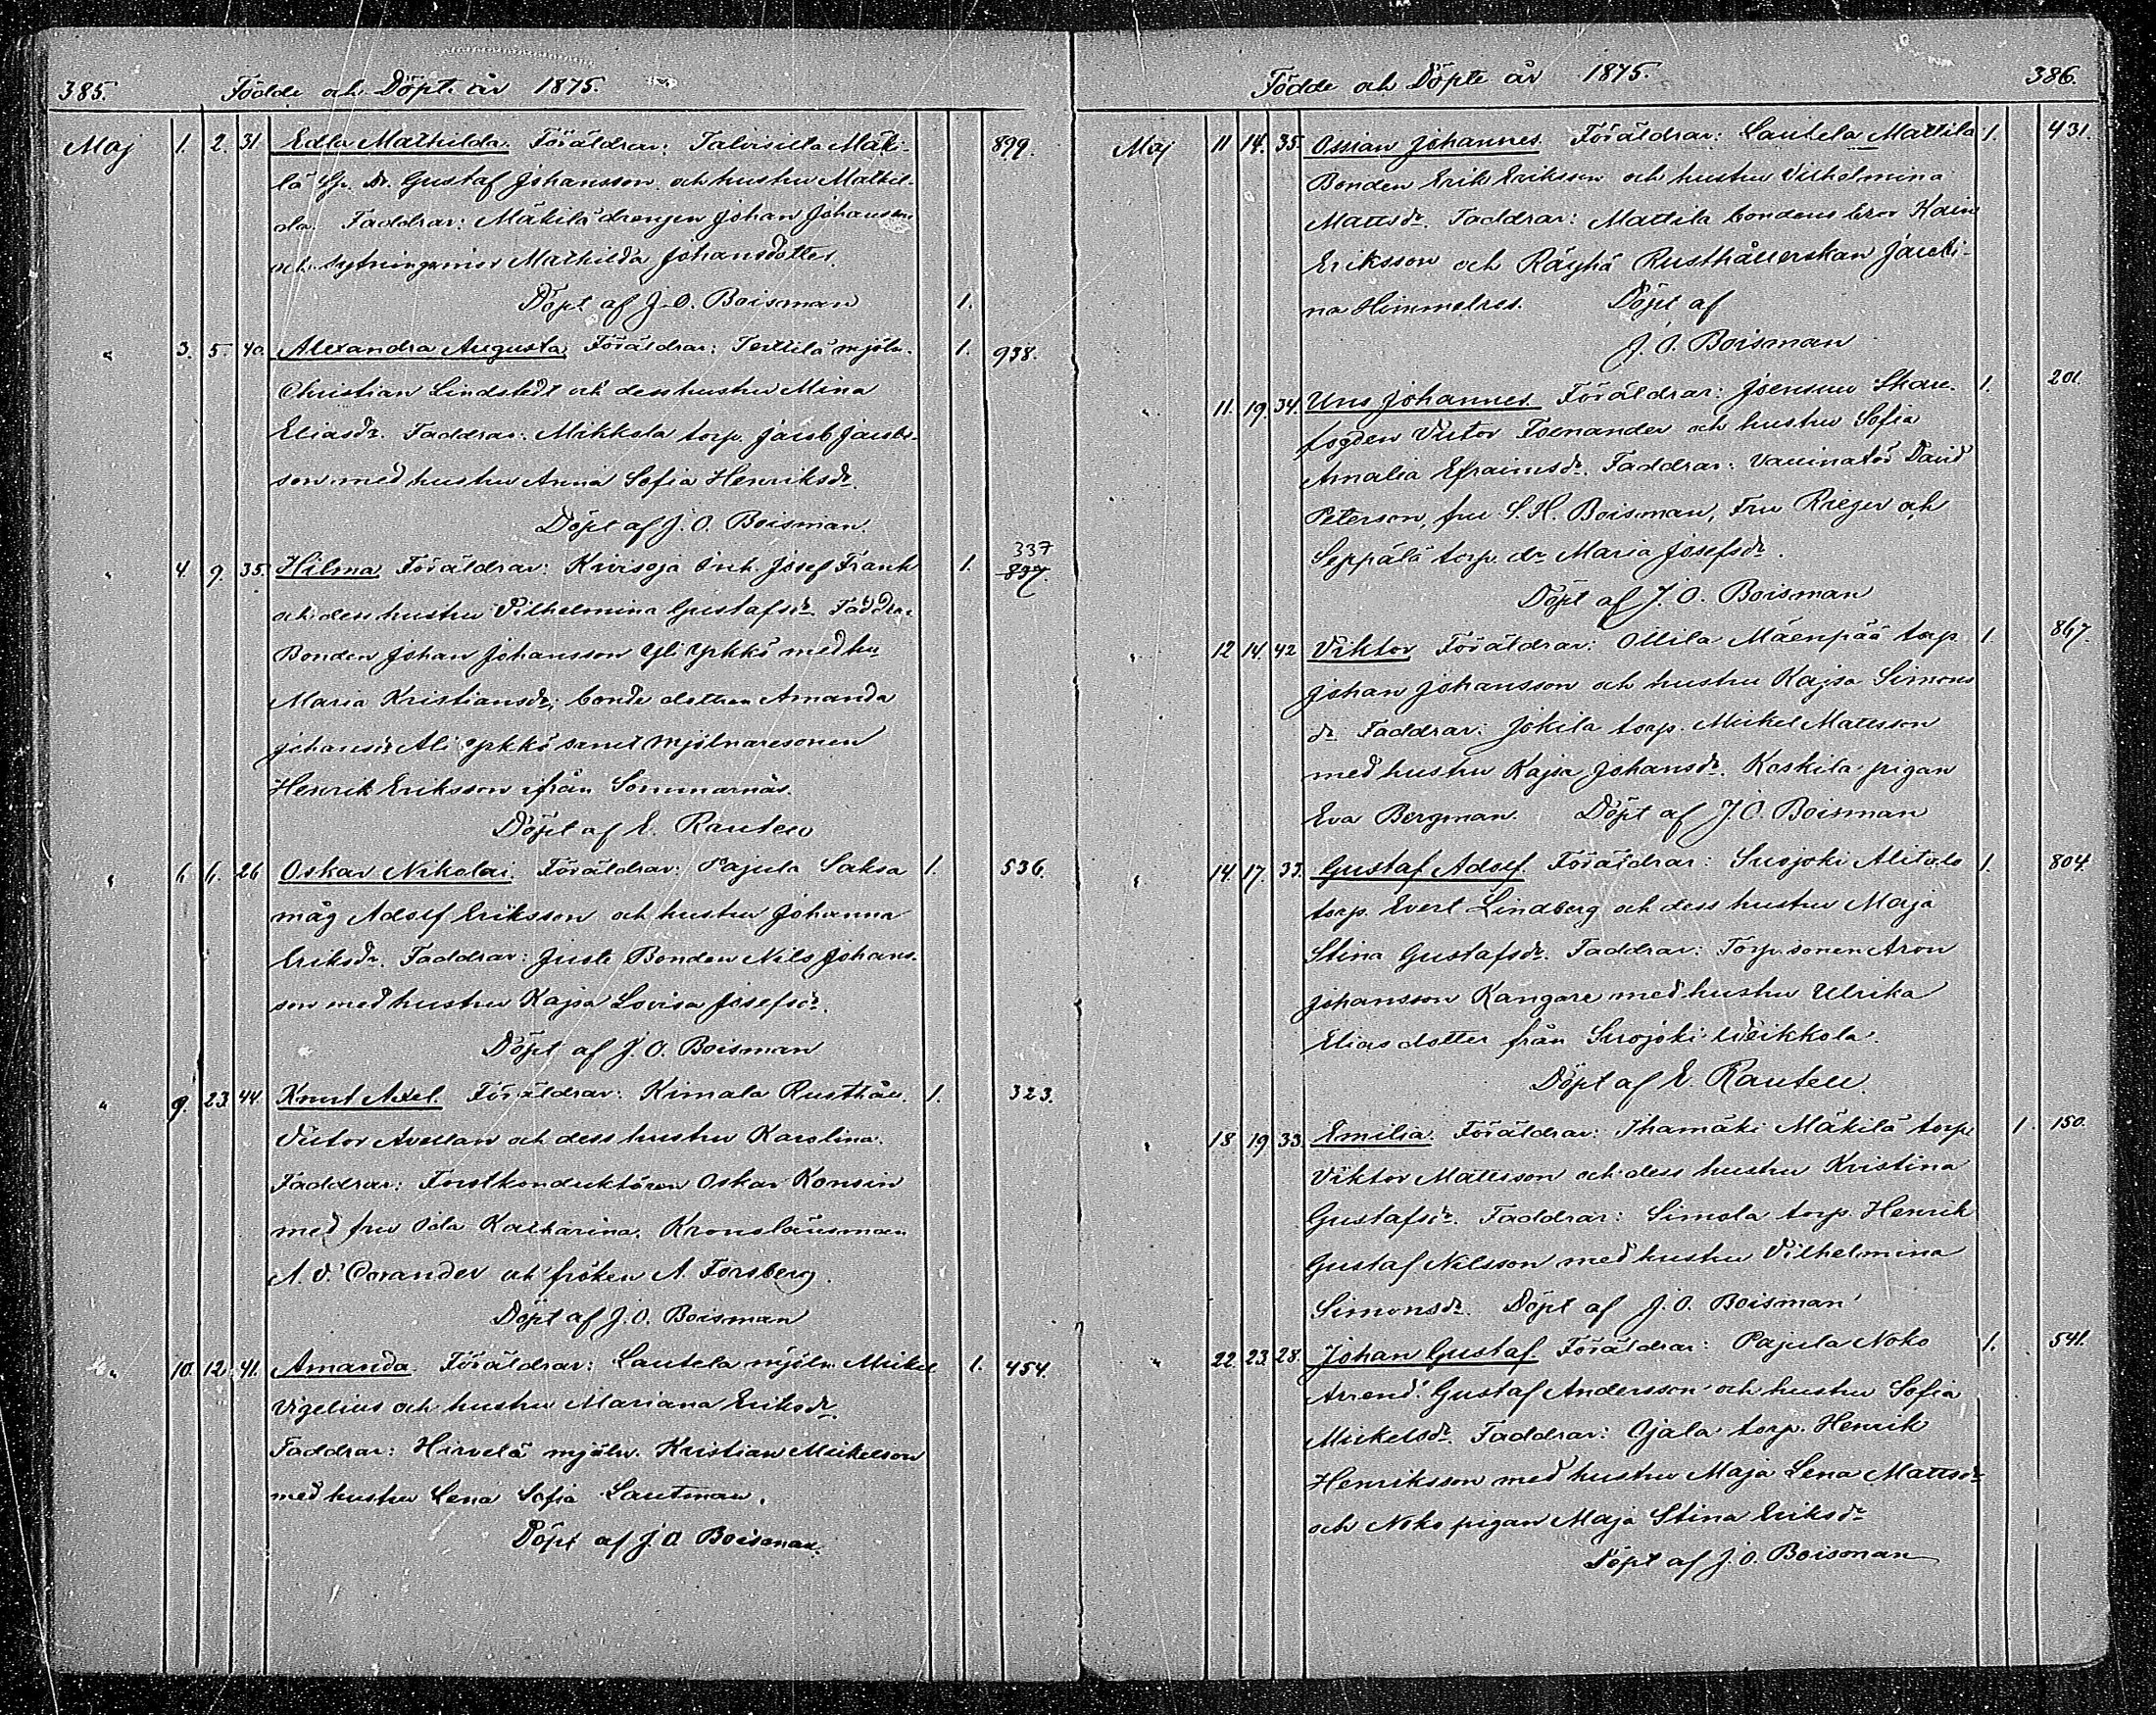 385. Födde och Döpte år 1875.
Maj 1. 2. 31 Edla Mathilda. Föräldrar: Talvisilla Mäki- 899.
lä Sp. Dr. Gustaf Johansson och hustru Mathil-
da. Faddrar: Mäkilä drengen Johan Johansson
och Mathilda Johansdotter.
Döpt af J. O. Boisman 1.
" 3. 5. 40. Alexandra Augusta. Föräldrar: Terttilä mjöln. 1. 938.
Christian Lindstedt och dess hustru Mina
Eliasdr. Faddrar: Mikkola torp. Jacob Jacobs-
son med hustru Anna Sofia Henriksdr.
Döpt af J. O. Boisman.
337
" 4. 9. 35. Hilma Föräldrar: Kivisoja Inh. Josef Frank 1. 837.
och dess hustru Vilhelmina Gustafsdr. Faddrar
Bonden Johan Johansson Yli Ypkkö med hu
Maria Kristiansdr, bonde dottren Amanda
Johansdr Ali Ypkkö samt Mjölnaresonen
Henrik Eriksson ifrån Sommarnäs.
Döpt af E. Rautell
" 6. 6. 26 Oskar Nikolai. Föräldrar: Pajula Saksa 1. 536.
måg Adolf Eriksson och hustru Johanna
Eriksdr. Faddrar: Juste Bonden Nils Johans-
son med hustru Kajsa Lovisa Josefsdr.
Döpt af J. O. Boisman
" 9. 23. 44. Knut Axel. Föräldrar: Kimala Rusthåll. 1. 323.
Victor Avellan och dess hustru Karolina.
Faddrar: Forstkonduktören Oskar Konsin
med fru Ida Katharina. Kronolänsman
A. V. Corander och fröken A. Forsberg.
Döpt af J. O. Boisman
" 10. 12. 41. Amanda. Föräldrar: Lautela mjöln. Mickel 1. 454.
Vigelius och hustru Mariana Eriksdr.
Faddrar: Hirvelä mjöln. Kristian Mickelson
med hustru Lena Sofia Lautman.
Döpt af J. O. Boisman.
Födde och Döpte år 1875. 386.
Maj 11. 14. 35. Ossian Johannes. Föräldrar: Lautela Mattila 1. 431.
Bonden Erik Eriksson och hustru Vilhelmina
Mattsdr. Faddrar: Mattila bondens bror Kain
Eriksson och Räyhä Rusthållerskan Jacobi-
na Himmelros. Döpt af
J. O. Boisman
" 11. 19. 34. Uno Johannes. Föräldrar: Joensuu Skau. 1. 201.
fogden Victor Toenander och hustru Sofia
Amalia Efraimsdr. Faddrar: Vaccinatör David
Peterson, fru S. H. Boisman, Fru Rieger och
Seppälä torp. dr Maria Josefsdr.
Döpt af J. O. Boisman
" 12 14. 42 Viktor Föräldrar: Ollila Mäenpää torp. 1. 867.
Johan Johansson och hustru Kajsa Simons
dr. Faddrar: Jokila torp. Mickel Mattsson
med hustru Kajsa Johansdr. Koskila pigan
Eva Bergman. Döpt af J. O. Boisman
" 14. 17. 33. Gustaf Adolf. Föräldrar: Suojoki Alitalo 1. 804.
torp. Evert Lindberg och dess hustru Maja
Stina Gustafsdr. Faddrar: Torp. sonen Aron
Johansson Kangare med hustru Ulrika
Elias dotter från Suojoki Weikkola.
Döpt af E. Rautell.
" 18 19 33. Emilia. Föräldrar: Ihamäki Mäkilä torp. 1. 150.
Viktor Mattsson och dess hustru Kristina
Gustafsdr. Faddrar: Simola torp. Henrik
Gustaf Nilsson med hustru Vilhelmina
Simonsdr. Döpt af J. O. Boisman
" 22. 23. 28. Johan Gustaf. Föräldrar: Pajula Noko 1. 541.
Arrend. Gustaf Andersson och hustru Sofia
Mickelsdr. Faddrar: Ojala torp. Henrik
Henriksson med hustru Maja Lena Mattsdr
och Noko pigan Maja Stina Eriksdr
Döpt af J. O. Boisman